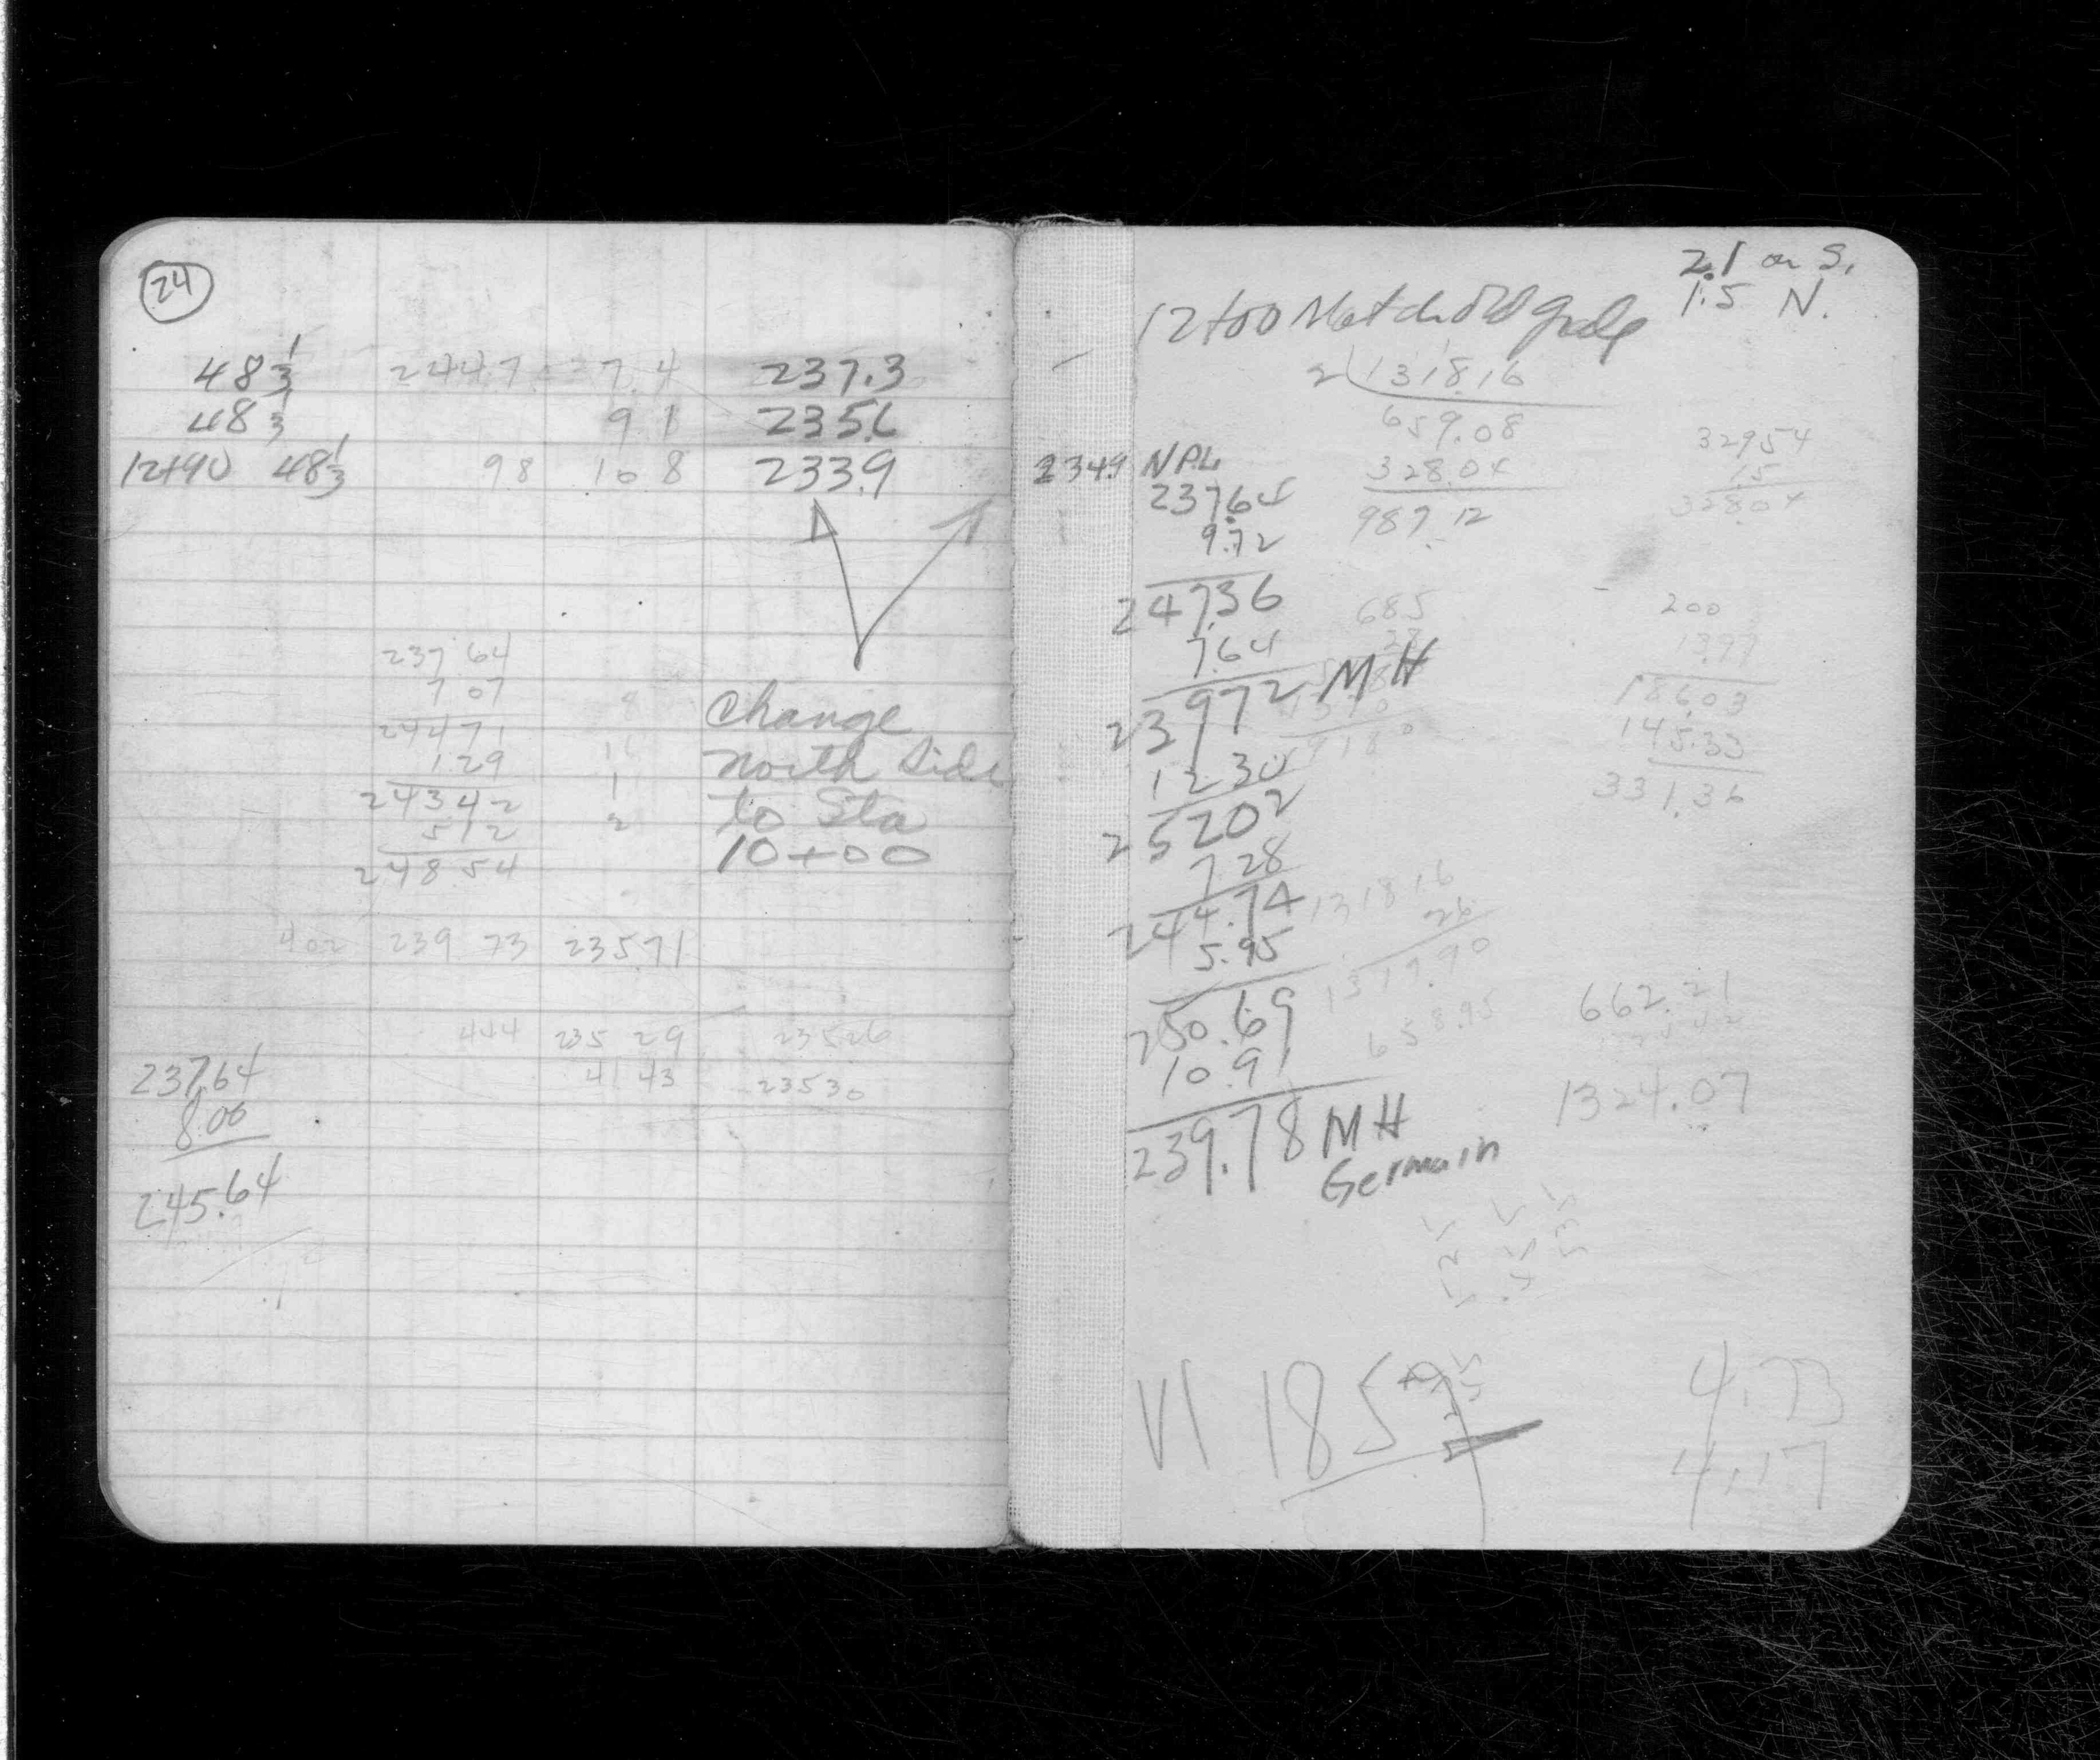 24
48 1/3 2447 7.4 237.3
48 1/3 9 1 235.6
12+90 48 1/3 98 10 8 233.9
237 64
7 07
244 71
1.29
243 42
5 12
248 54
Change
North Side
to Sta
10+00
402 239 73 235 71
444 235 29 235 26
41 43 235 30
237.64
8.00
245.64
2.1 on S.
1.5 N.
12+00 Match Old Grade
2 1318.16
659.08
328.04
987.12
329 54
1.5
328.04
234.9 NPL
237.64
9.72
247.36
7.64
239 72 MH
12 30
252 02
7.28
244.74
5.95
250.69
10.91
239.78 MH
Germain
685
200
13.97
186.03
145.33
331.36
1318 16
26
1317.90
658.95
662.21
1324.07
VI 185
4.73
4.17